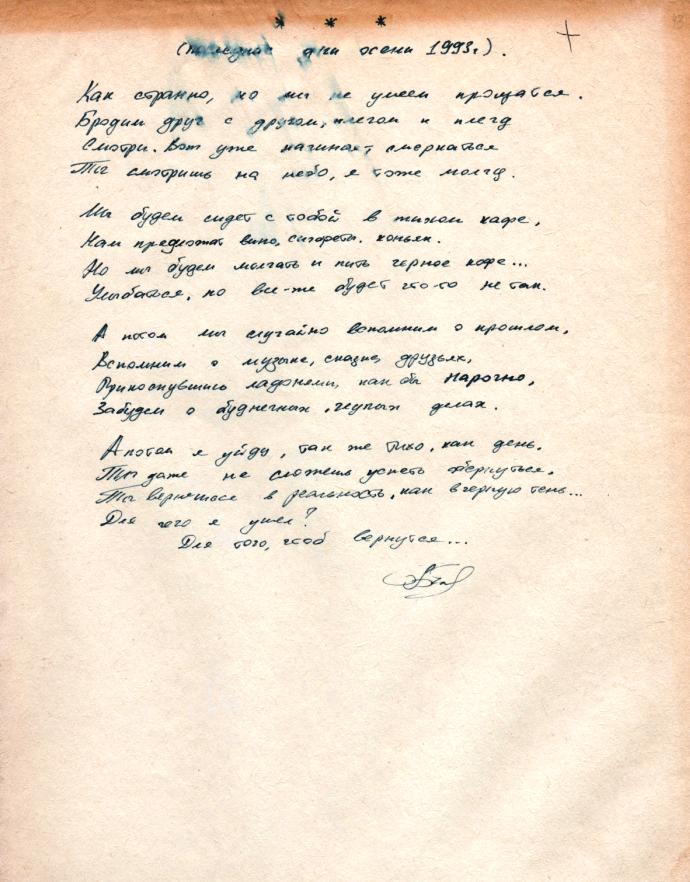 * * *
(последние дни осени 1993г.).
Как странно, но мы не умеем прощатся.
Бродим друг с другом, плечом к плечу
Смотри. Вот уже начинает смеркаться
Ты смотришь на небо, я тоже молчу.
Мы будем сидет с тобой в тихом кафе,
Нам предложат вино, сигареты. коньяк.
Но мы будем молчать и пить черное кофе...
Улыбаться, но все-же будет что-то не так.
А потом мы случайно вспомним о прошлом,
Вспомним о музыке, сказке, друзьях,
Прикоснувшись ладонями, как бы нарочно,
Забудем о будничных, глупых делах.
А потом я уйду, так же тихо, как день.
Ты даже не сможешь успеть обернуться.
Ты вернешься в реальность, как в черную тень...
Для чего я ушел?
Для того, чтоб вернутся...